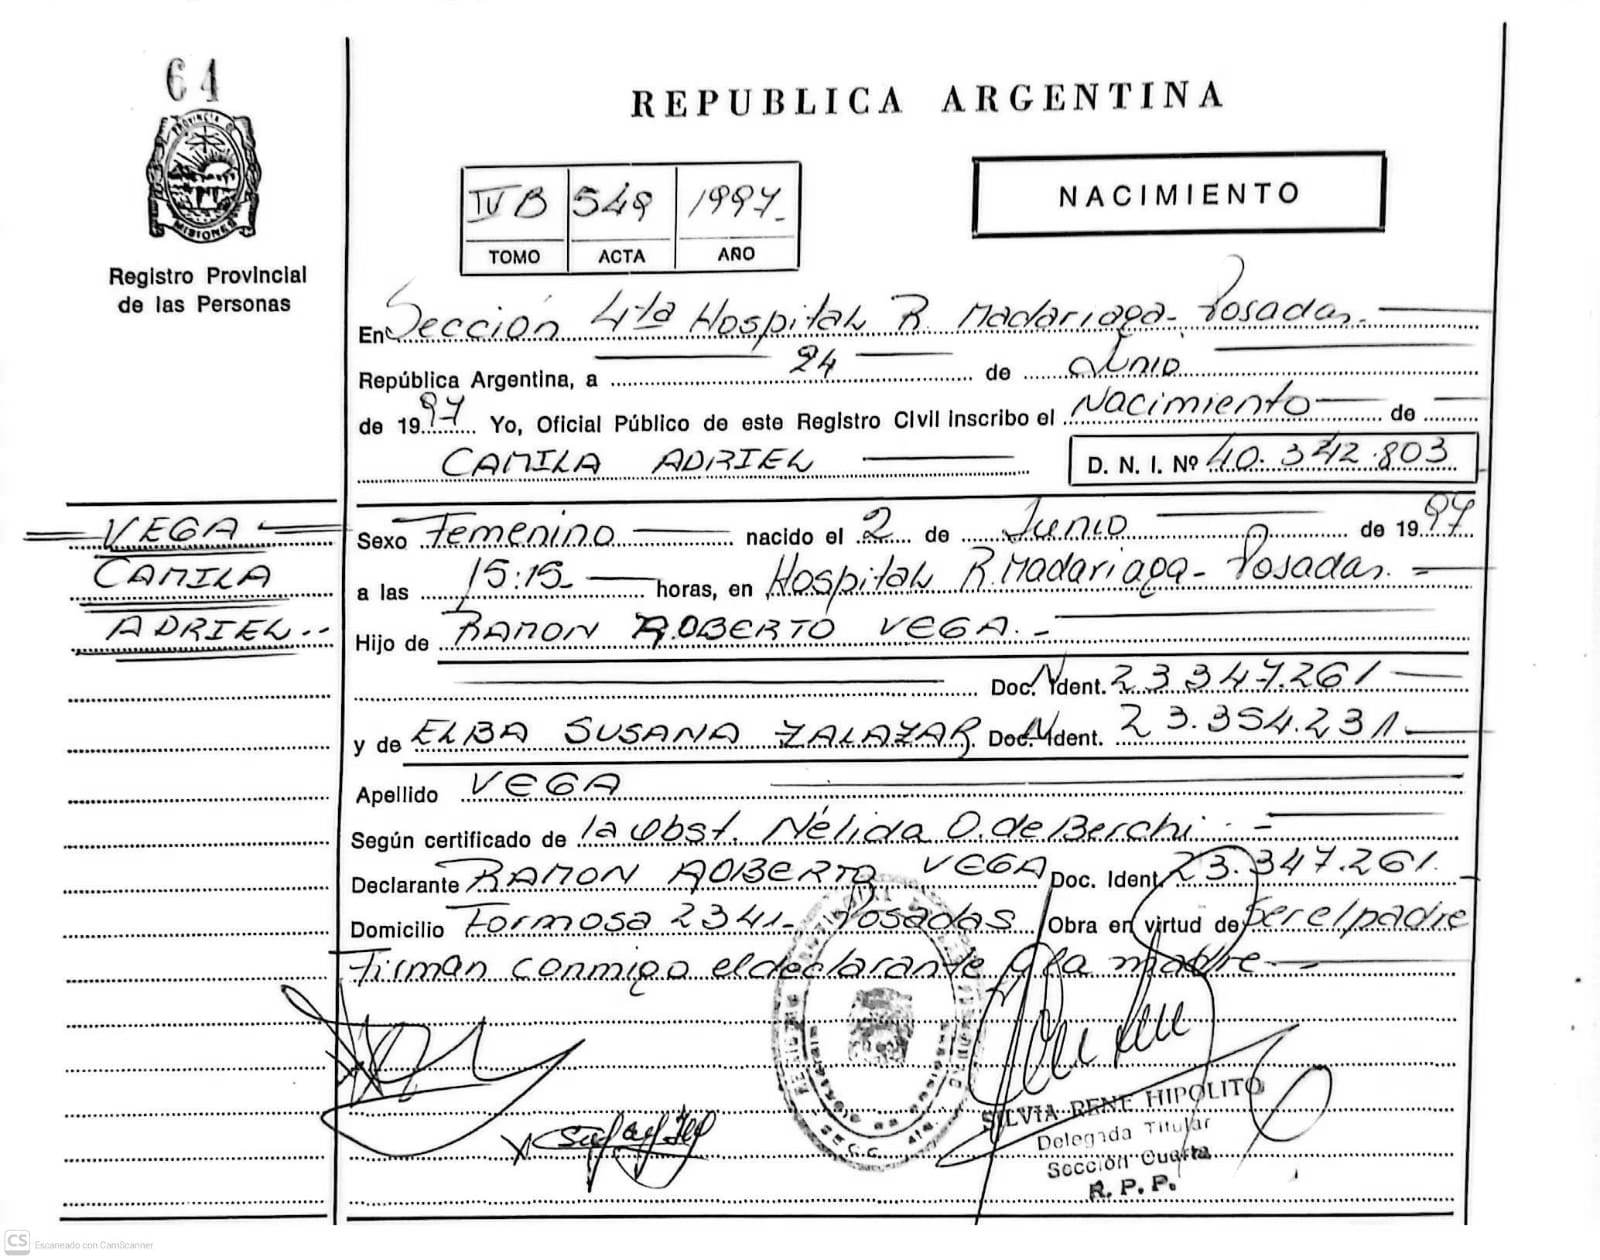 64
PROVINCIA DE
MISIONES
Registro Provincial
de las Personas
REPUBLICA ARGENTINA
IV B 549 1997.-
TOMO ACTA AÑO
NACIMIENTO
En Sección 4ta Hospital R. Madariaga - Posadas.
República Argentina, a 24 de Junio
de 1997 Yo, Oficial Público de este Registro Civil inscribo el Nacimiento de
CAMILA ADRIEL D. N. I. Nº 40.342.803
VEGA
CAMILA
ADRIEL.-
Sexo Femenino nacido el 2 de Junio de 1997
a las 15:15 horas, en Hospital R. Madariaga - Posadas.
Hijo de RAMON ROBERTO VEGA.-
Doc. Ident. 23.347.261
y de ELBA SUSANA ZALAZAR Doc. Ident. 23.354.231
Apellido VEGA
Según certificado de la Obst. Nélida O. de Berchi.-
Declarante RAMON ROBERTO VEGA Doc. Ident. 23.347.261.
Domicilio Formosa 2341 - Posadas Obra en virtud de Ser el padre
Firman conmigo el declarante y la madre
SILVIA RENE HIPOLITO
Delegada Titular
Sección Cuarta
R. P. P.
CS Escaneado con CamScanner